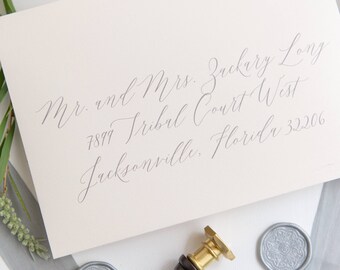 Mr. and Mrs. Zackary Long
7899 Tribal Court West
Jacksonville, Florida 32206